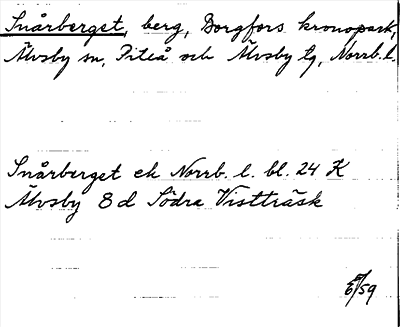 Snårberget, berg, Borgfors kronopark,
Älvsby sn, Piteå och Älvsby tg, Norrb. l.
Snårberget ek Norrb. l. bl. 24 K
Älvsby 8 d Södra Vistträsk
/59